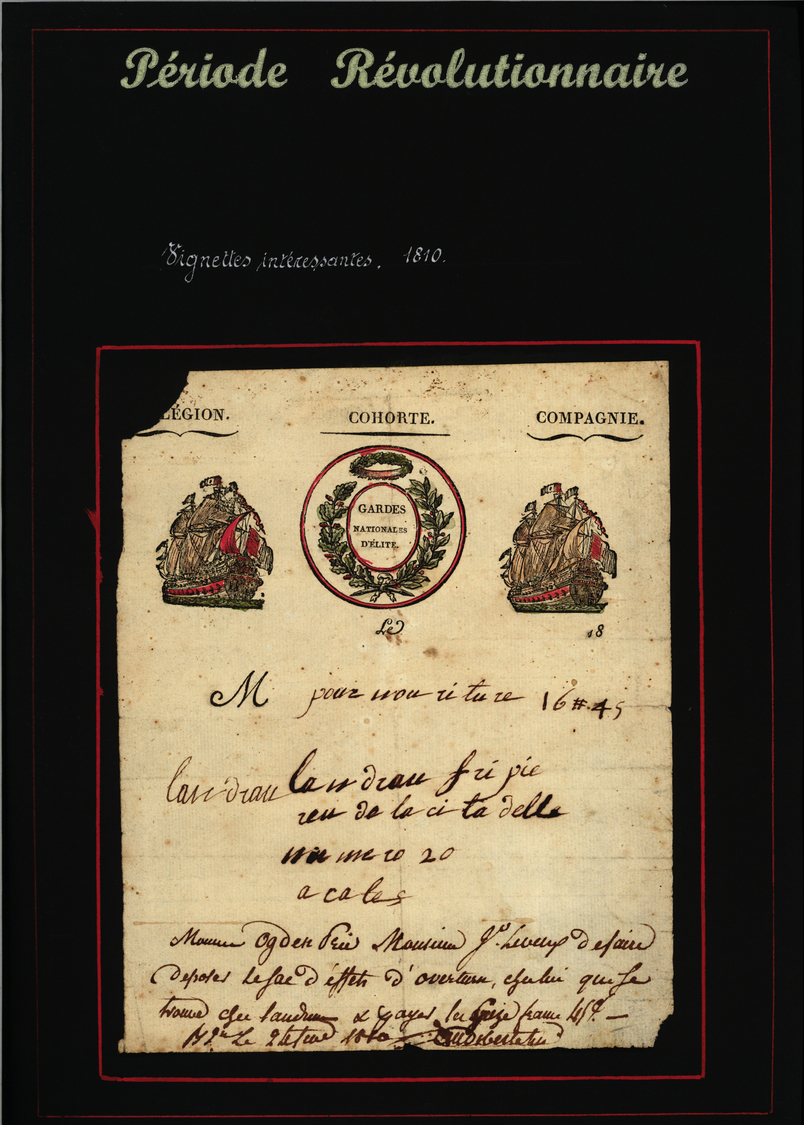 Période Révolutionnaire
Vignettes intéressantes. 1810.
LÉGION. COHORTE. COMPAGNIE.
GARDES
NATIONALES
D'ÉLITE.
Le 18
M pour nou ri ture 16 # 4 s
landrau landrau fri pie
reu de la ci ta delle
nu me ro 20
a cales
Ogden Prie Monsieur Jn. Leveux de faire
deposer le sac d'effets d'overturn, ches lui que se
trouve ches landrau & payer les seize francs 4
Le 1810